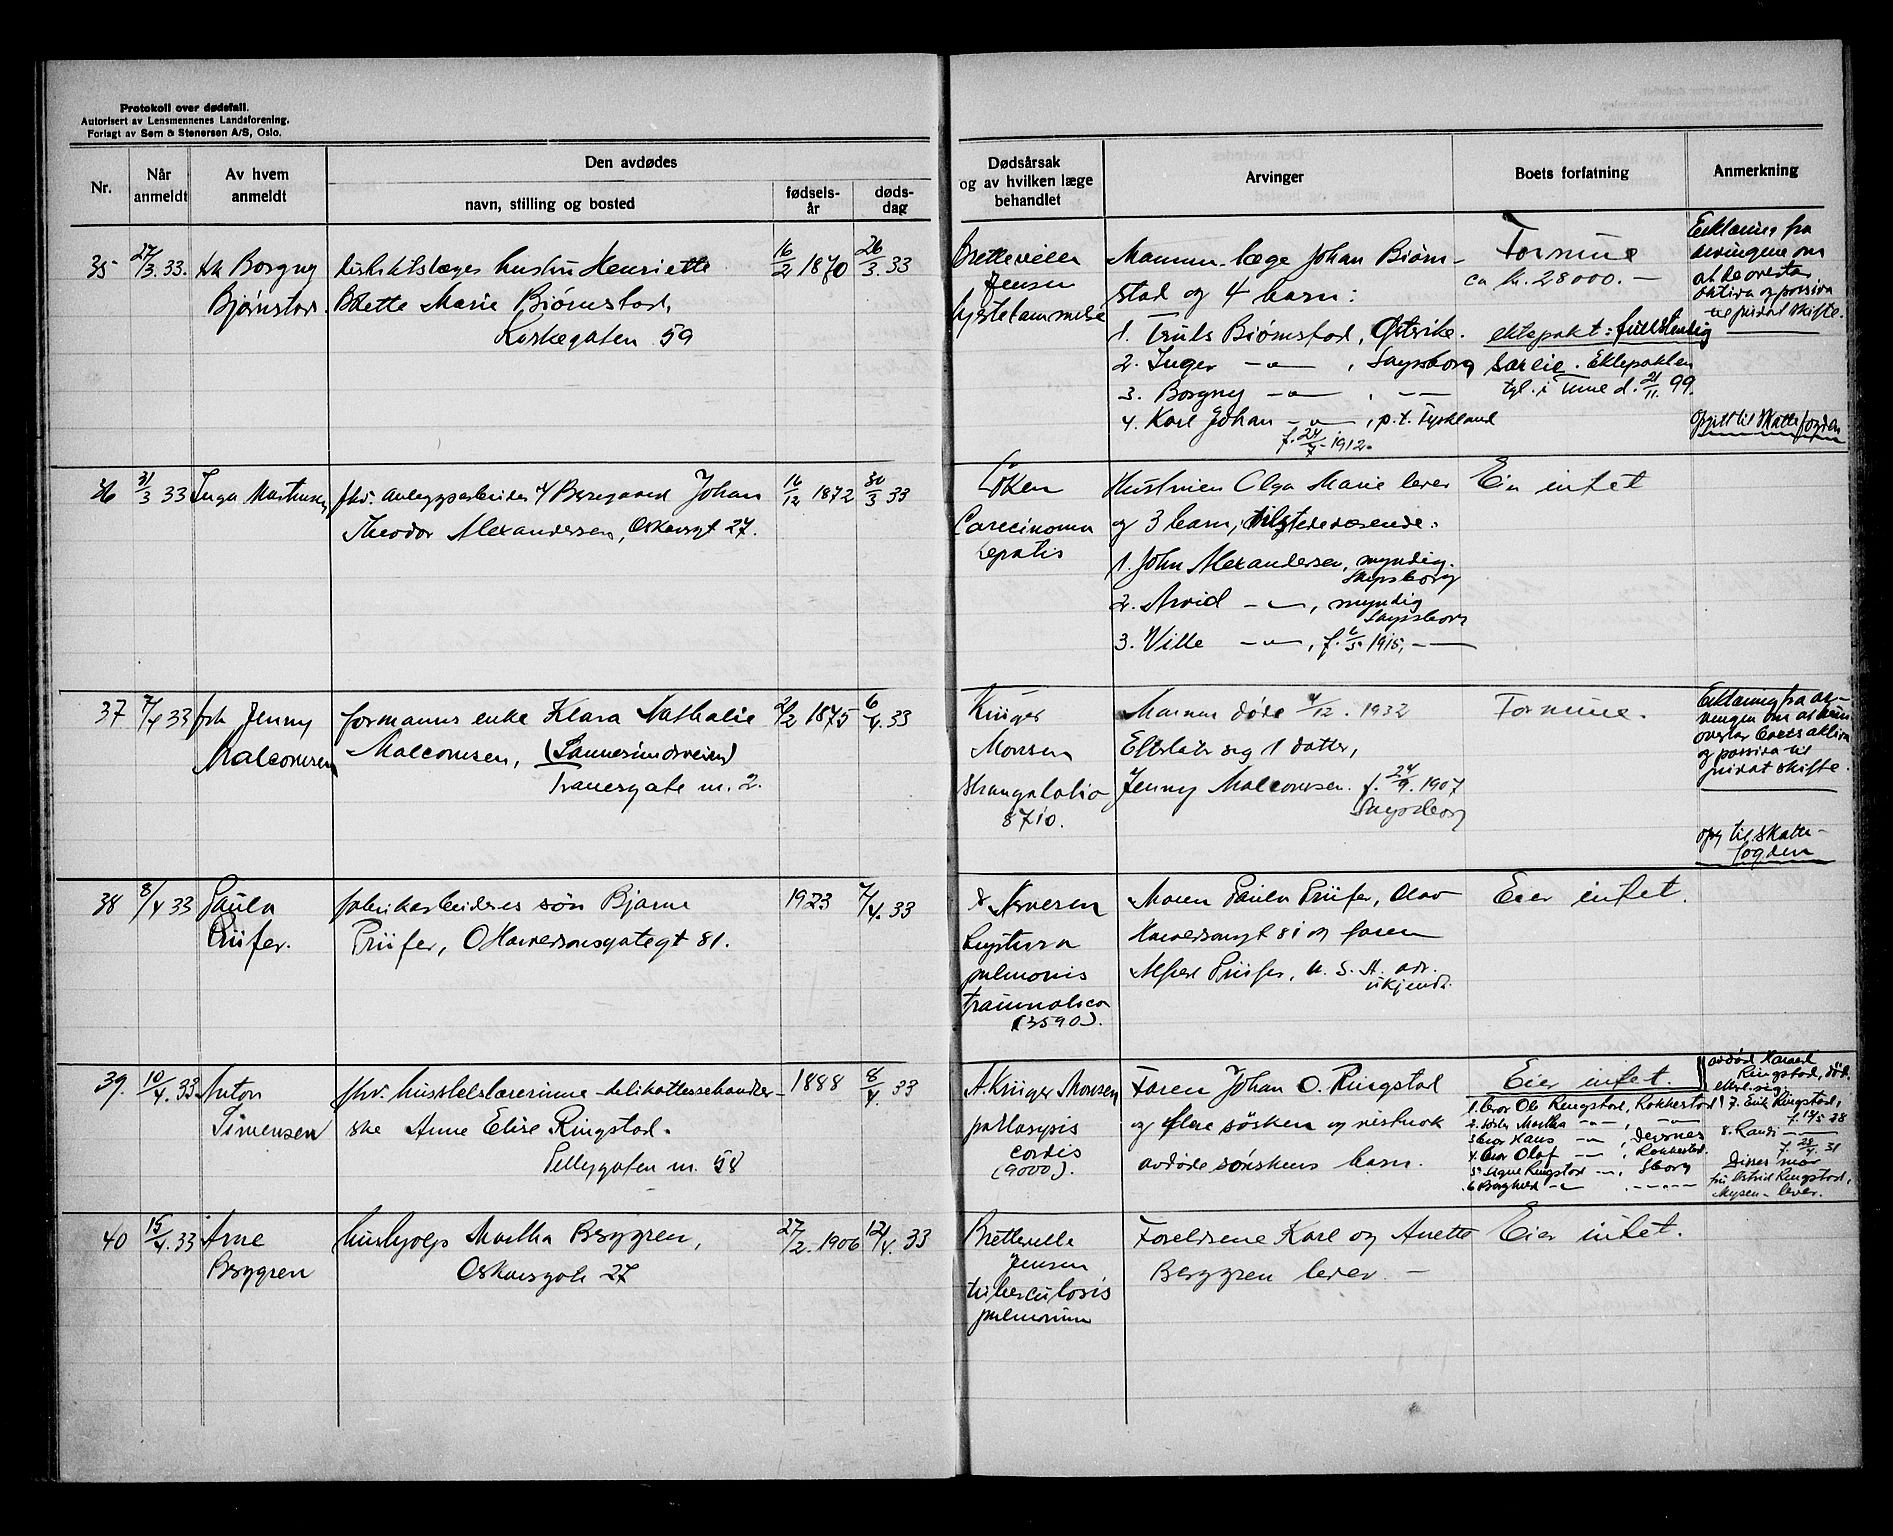 Protokoll over dødsfall.
Autorisert av Lensmennenes Landsforening.
Forlagt av Sem & Stenersen A/S, Oslo.
Nr.
Når anmeldt
Av hvem anmeldt
Den avdødes
navn, stilling og bosted
fødsels-år
døds-dag
Dødsårsak
og av hvilken læge
behandlet
Arvinger
Boets forfatning
Anmerkning
35 27/3. 33. frk Borgny
Bjørnstad.
distriktslæges hustru Henriette
Bolette Marie Bjørnstad,
Kirkegaten 59
16/2 1870
26/3 33
Bretteville
Jensen
hjertelammelse
Mannen læge Johan Bjørn-
stad og 4 barn:
1. Truls Bjørnstad, Østerike.
2. Inger —"—, Sarpsborg
3. Borgny —"—, —"—
4. Karl Johan —"—, p.t. Tyskland
f. 24/7 1912.
Formue
ca kr. 28000.—
ektepakt: fullstendig
særeie. Ektepakten
tgl. i Tune d. 21/11 99.
Erklæring fra
arvingene om
at de overtar
aktiva og passiva
til privat skifte.
Opgitt til skattefogden
36 31/3 33 Inga Martinsen
fhv. anleggsarbeider v/ Borregaard Johan
Theodor Alexandersen, Oskarsgt 27.
16/12 1872
30/3 33
Løken
Carcinoma
hepatis
Hustruen Olga Marie lever
og 3 barn, tilstedeværende:
1. John Alexandersen, myndig.
Sarpsborg
2. Arvid —"—, myndig
Sarpsborg
3. Ville —"—, f. 6/5 1915, —"—
Eier intet
37 7/4 33 frk Jenny
Malcomsen
formanns enke Klara Nathalie
Malcomsen, (Sannesundsveien)
Tranesgate nr. 2.
2/2 1875
6/4 33
Krüger
Monsen
Strangulatio
8710.
Mannen døde 4/12. 1932
Efterlater sig 1 datter,
Jenny Malcomsen. f. 24/9. 1907
Sarpsborg
Formue.
Erklæring fra ar-
vingen om at hun
overtar boets aktiva
og passiva til
privat skifte.
opg til skatte-
fogden
38 8/4 33 Paula
Prüfer.
fabrikarbeideres søn Bjarne
Prüfer, O Haraldsonsgategt 81.
1923
7/4. 33
Arvesen
Ruptura
pulmonis
traumatica
(3590).
Moren Paula Prüfer, Olav
Haraldsonsgt 81 og faren
Alfred Prüfer, U.S.A. adr.
ukjendt.
Eier intet.
39. 10/4. 33 Anton
Simensen
fhv. husstelslærerinne - delikatessehandler-
ske Anne Elise Ringstad.
Pellygaten nr. 58
1888
8/4. 33
A. Krüger Monsen
paralysis
cordis
(9000).
Faren Johan O. Ringstad
og flere søsken og vistnok
avdøde søskens barn.
Eier intet.
1. bror Ole Ringstad, Rakkestad
2. søster Martha —"—, —"—
3 bror Hans —"—, Degernes
4. bror Olaf —"—, Rakkestad.
5. Signe Ringstad —"—, Sborg
6 Borghild —"—, —"—
avdøde Harald
Ringstad, død,
efterl. sig:
7. Erik Ringstad,
f. 12/5 28
8. Randi —"—
f. 28/4. 31
Disses mor
fru Astrid Ringstad,
Mysen - lever.
40 15/4. 33 Arne
Berggren
hushjelp Martha Berggren,
Oskarsgate 27
27/2. 1906
12/4. 33
Bretteville
Jensen
tuberculosis
pulmonum
Foreldrene Karl og Anette
Berggren lever. —
Eier intet.